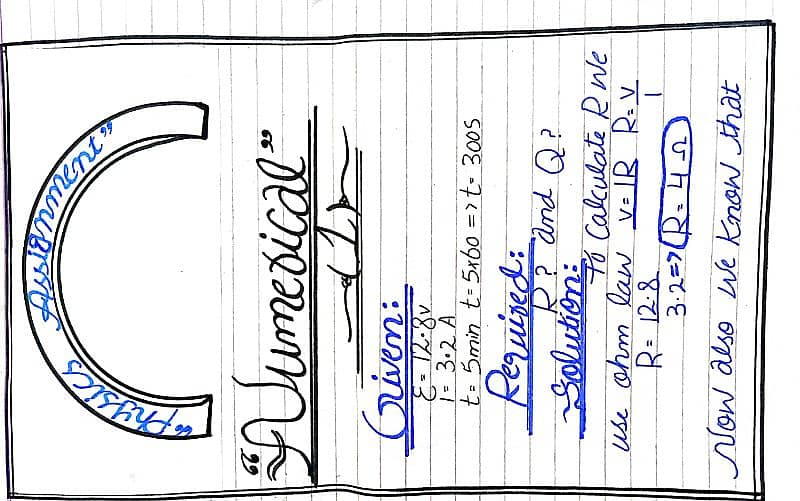 "Physics Assignment"
"Numerical"
(1)
Given:
Ɛ = 12.8v
I = 3.2 A
t = 5min t = 5x60 => t = 300s
Required:
R? and Q?
Solution:
To Calculate R we
use ohm law V = IR R = V/I
R = 12.8/3.2 => R = 4 Ω
Now also we know that